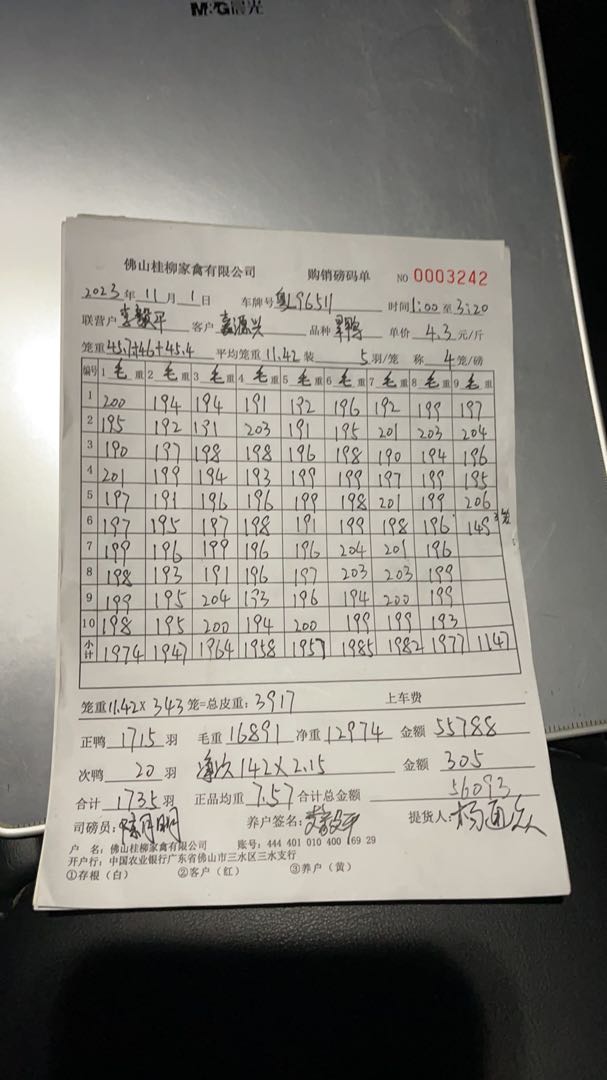 M&G晨光
佛山桂柳家禽有限公司 购销磅码单 NO 0003242
2023年11月1日 车牌号 粤L96511 时间1:00至3:20
联营户 李毅平 客户 鑫源兴 品种 单价 4.3元/斤
笼重45.7+46+45.4 平均笼重11.42装 5羽/笼 称 4笼/磅
编号 1毛重 2毛重 3毛重 4毛重 5毛重 6毛重 7毛重 8毛重 9毛重
1 200 194 194 191 192 196 192 199 197
2 195 192 191 203 191 195 201 203 204
3 190 197 198 198 196 198 190 194 196
4 201 199 194 193 199 199 197 199 195
5 197 191 196 196 199 198 201 199 206
6 197 195 197 198 191 199 198 196 149 3笼
7 199 196 199 196 196 204 201 196
8 198 193 191 196 197 203 203 199
9 199 195 204 193 196 194 200 199
10 198 195 200 194 200 199 199 193
小计 1974 1947 1964 1958 1957 1985 1982 1977 1147
笼重11.42×343笼=总皮重:3917 上车费
正鸭 1715羽 毛重16891净重12974 金额55788
次鸭 20羽 142×2.15 金额 305
合计 1735羽 正品均重 7.57 合计总金额 56093
司磅员: 养户签名: 提货人:
户 名: 佛山桂柳家禽有限公司 账号: 444 401 010 400 169 29
开户行: 中国农业银行广东省佛山市三水区三水支行
①存根（白） ②客户（红） ③养户（黄）